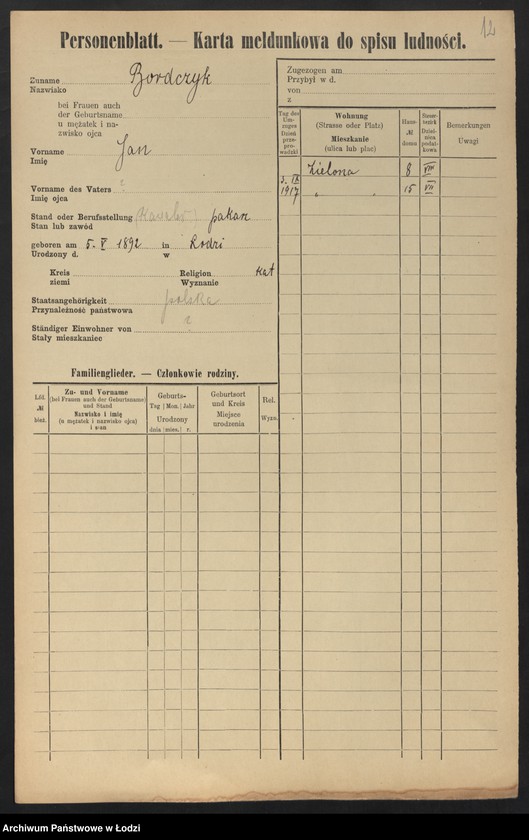 12
Personenblatt. — Karta meldunkowa do spisu ludności.
Zuname Bordczyk
Nazwisko
bei Frauen auch
der Geburtsname
u mężatek i na-
zwisko ojca
Vorname Jan
Imię
Vorname des Vaters ?
Imię ojca
Stand oder Berufsstellung (Kawaler) pakan
Stan lub zawód
geboren am 5. V 1892 in Lodzi
Urodzony d. w
Kreis Religion kat
ziemi Wyznanie
Staatsangehörigkeit polska
Przynależność państwowa
Ständiger Einwohner von ?
Stały mieszkaniec
Zugezogen am
Przybył w d.
von
z
Tag des Um-zuges Dzień prze-pro-wadzki
Wohnung (Strasse oder Platz) Mieszkanie (ulica lub plac)
Haus- № domu
Steuer-bezirk Dziel-nica podat-kowa
Bemerkungen Uwagi
Zielona 8 VIII
3. IX
1917 " " 15 VII
Familienglieder. — Członkowie rodziny.
Lfd. № bież.
Zu- und Vorname
(bei Frauen auch der Geburtsname)
und Stand
Nazwisko i imię
(u mężatek i nazwisko ojca)
i stan
Geburts-
Tag Mon. Jahr
Urodzony
dnia mies. r.
Geburtsort
und Kreis
Miejsce
urodzenia
Rel.
Wyzn.
Archiwum Państwowe w Łodzi